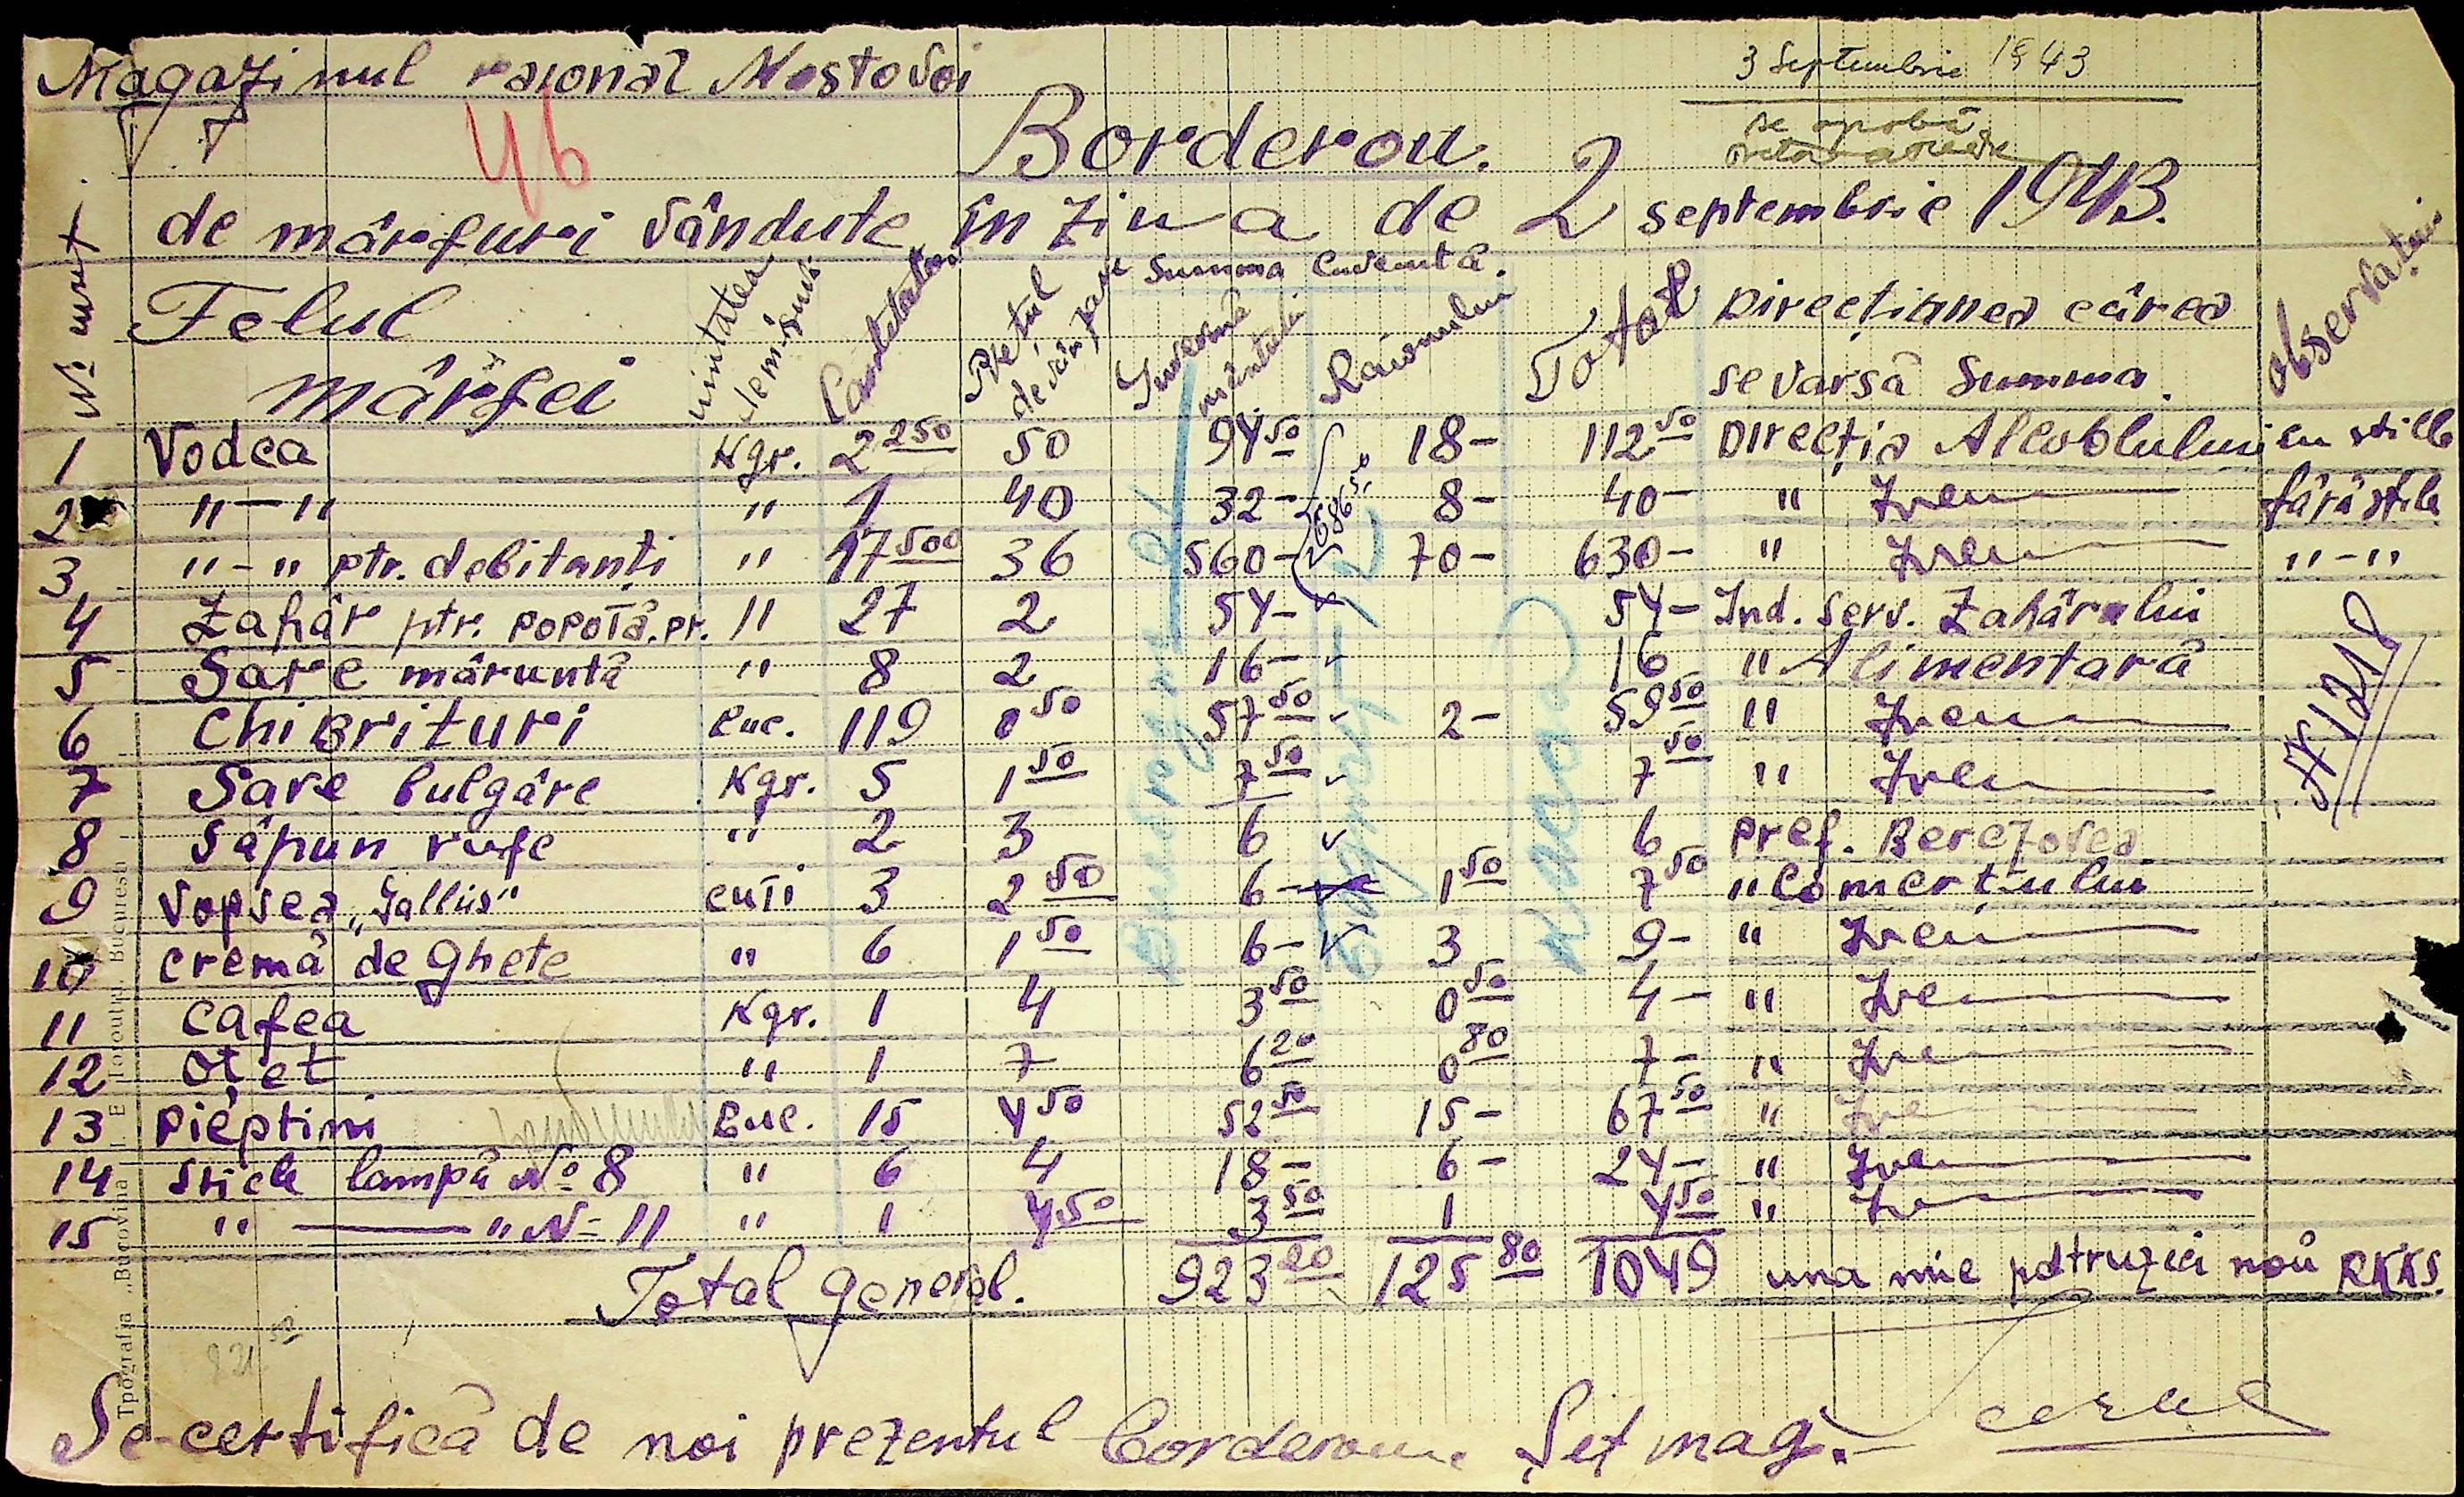 Magazinul raional Mostovoi
3 Septembrie 1943
se aprobă
46
Borderou.
de mărfuri vândute în ziua de 2 septembrie 1943.
№ curt.
Felul mărfei
unitatea de măsură
Cantitatea
Prețul de vânzare
Summa cuvenită.
Guvernământului
Raionului
Total
Direcțiunea cărea se varsă Summa.
observațiuni
1 Vodca Kgr. 2 250 50 94 50 18- 112 50 Direcția Alcoolului cu sticle
2 "-" " 1 40 32- 8- 40- " Idem fără sticle
686 50
3 "-" ptr. debitanți " 17 500 36 560- 70- 630- " Idem "-"
4 Zahăr ptr. popotă. pr. " 27 2 54- 54- Ind. serv. Zahărului
5 Sare măruntă " 8 2 16- 16 " Alimentară
6 Chibrituri Buc. 119 0 50 57 50 2- 59 50 " Idem
7 Sare bulgăre Kgr. 5 1 50 7 50 7 50 " Idem
8 Săpun rufe " 2 3 6 6 Pref. Berezovca
9 Vopsea „Gallus" cuti 3 2 50 6- 1 50 7 50 " Comerțului
10 cremă de ghete " 6 1 50 6- 3 9- " Idem
11 cafea Kgr. 1 4 3 50 0 50 4- " Idem
12 oțet " 1 7 6 20 0 80 7- " Idem
13 piepțini Buc. 15 4 50 52 50 15- 67 50 " Idem
14 sticle lampă № 8 " 6 4 18- 6- 24- " Idem
15 " " N= 11 " 1 4 50 3 50 1 4 50 " Idem
Total general. 923 20 125 80 1049 una mie patruzeci nouă RKKS.
Se certifică de noi prezentul borderou. Șef mag.
Tpografia „Bucovina" I. E. Torouțiu, București